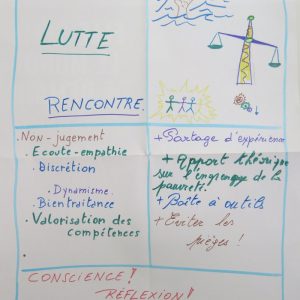 LUTTE
RENCONTRE.
Non-jugement
. Ecoute-empathie
. Discrétion
. Dynamisme.
. Bientraitance
. Valorisation des
compétences
.
+ Partage d'expérience
+ Apport théorique
sur l'engrenage de la
pauvreté!
+ Boîte à outils
+ Eviter les
pièges!
CONSCIENCE!
RÉFLEXION!